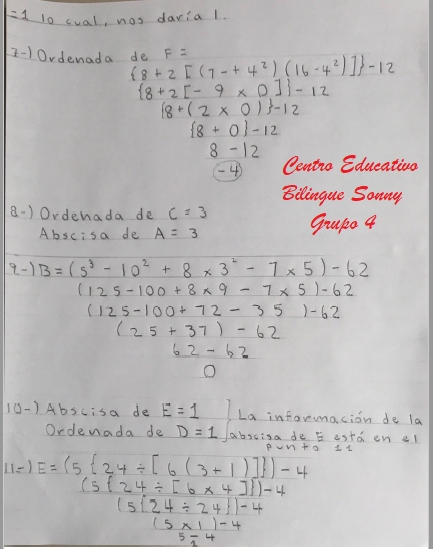 =1 lo cual, nos daría 1.
7-) Ordenada de F =
{8+2[(7-+4²)(16-4²)]}-12
{8+2[-9 x 0]}-12
{8+(2 x 0)}-12
{8+0}-12
8-12
-4
Centro Educativo
Bilingue Sonny
Grupo 4
8-) Ordenada de C=3
Abscisa de A=3
9-) B=(5³-10²+8x3²-7x5)-62
(125-100+8x9-7x5)-62
(125-100+72-35)-62
(25+37)-62
62-62
0
10-) Abscisa de E=1 ] La información de la
Ordenada de D=1 ] abscisa de E está en el
punto 11
11-) E=(5{24÷[6(3+1)]})-4
(5{24÷[6x4]})-4
(5{24÷24})-4
(5x1)-4
5-4
1